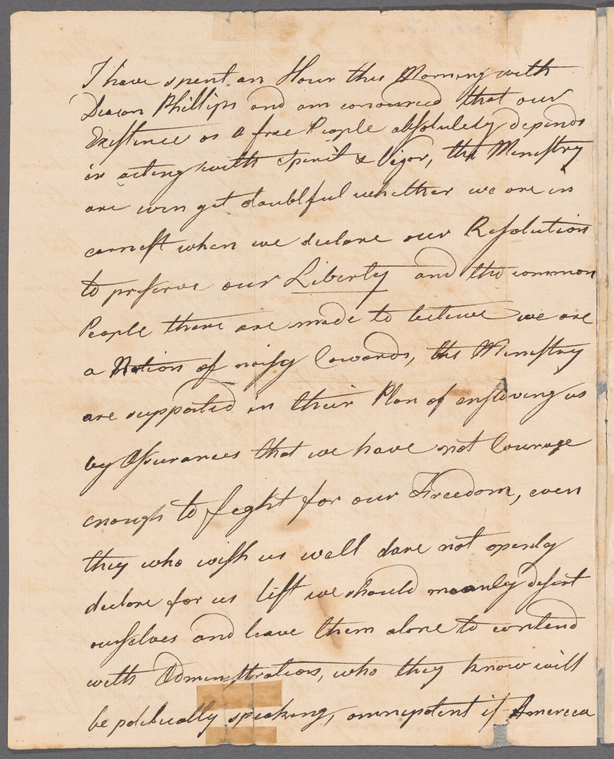 I have spent an Hour this Morning with
Deacon Phillips and am convinced that our
Existence as a free People absolutely depends
in acting with spirit & Vigor, the Ministry
are even yet doubtful whether we are in
earnest when we declare our Resolution
to preserve our Liberty and the common
People there are made to believe we are
a Nation of noisy Cowards, the Ministry
are supported in their Plan of enslaving us
by Assurances that we have not Courage
enough to fight for our Freedom, even
they who wish us well dare not openly
declare for us lest we should meanly desert
ourselves and leave them alone to contend
with Administration, who they know will
be politically speaking, omnipotent if America